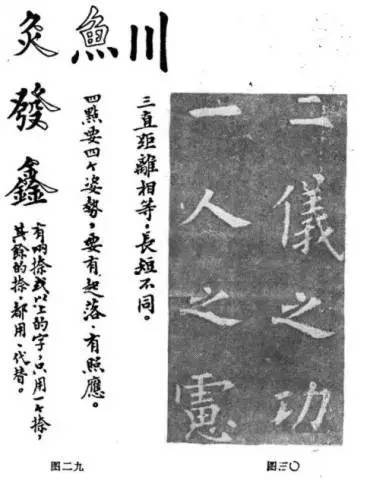 二儀之功
一人之憲
川
三直距離相等，長短不同。
魚
四點要四个姿勢，要有起落、有照應。
灸發鑫
有兩捺或以上的字，只用一个捺，
其餘的捺，都用、代替。
图三〇
图二九